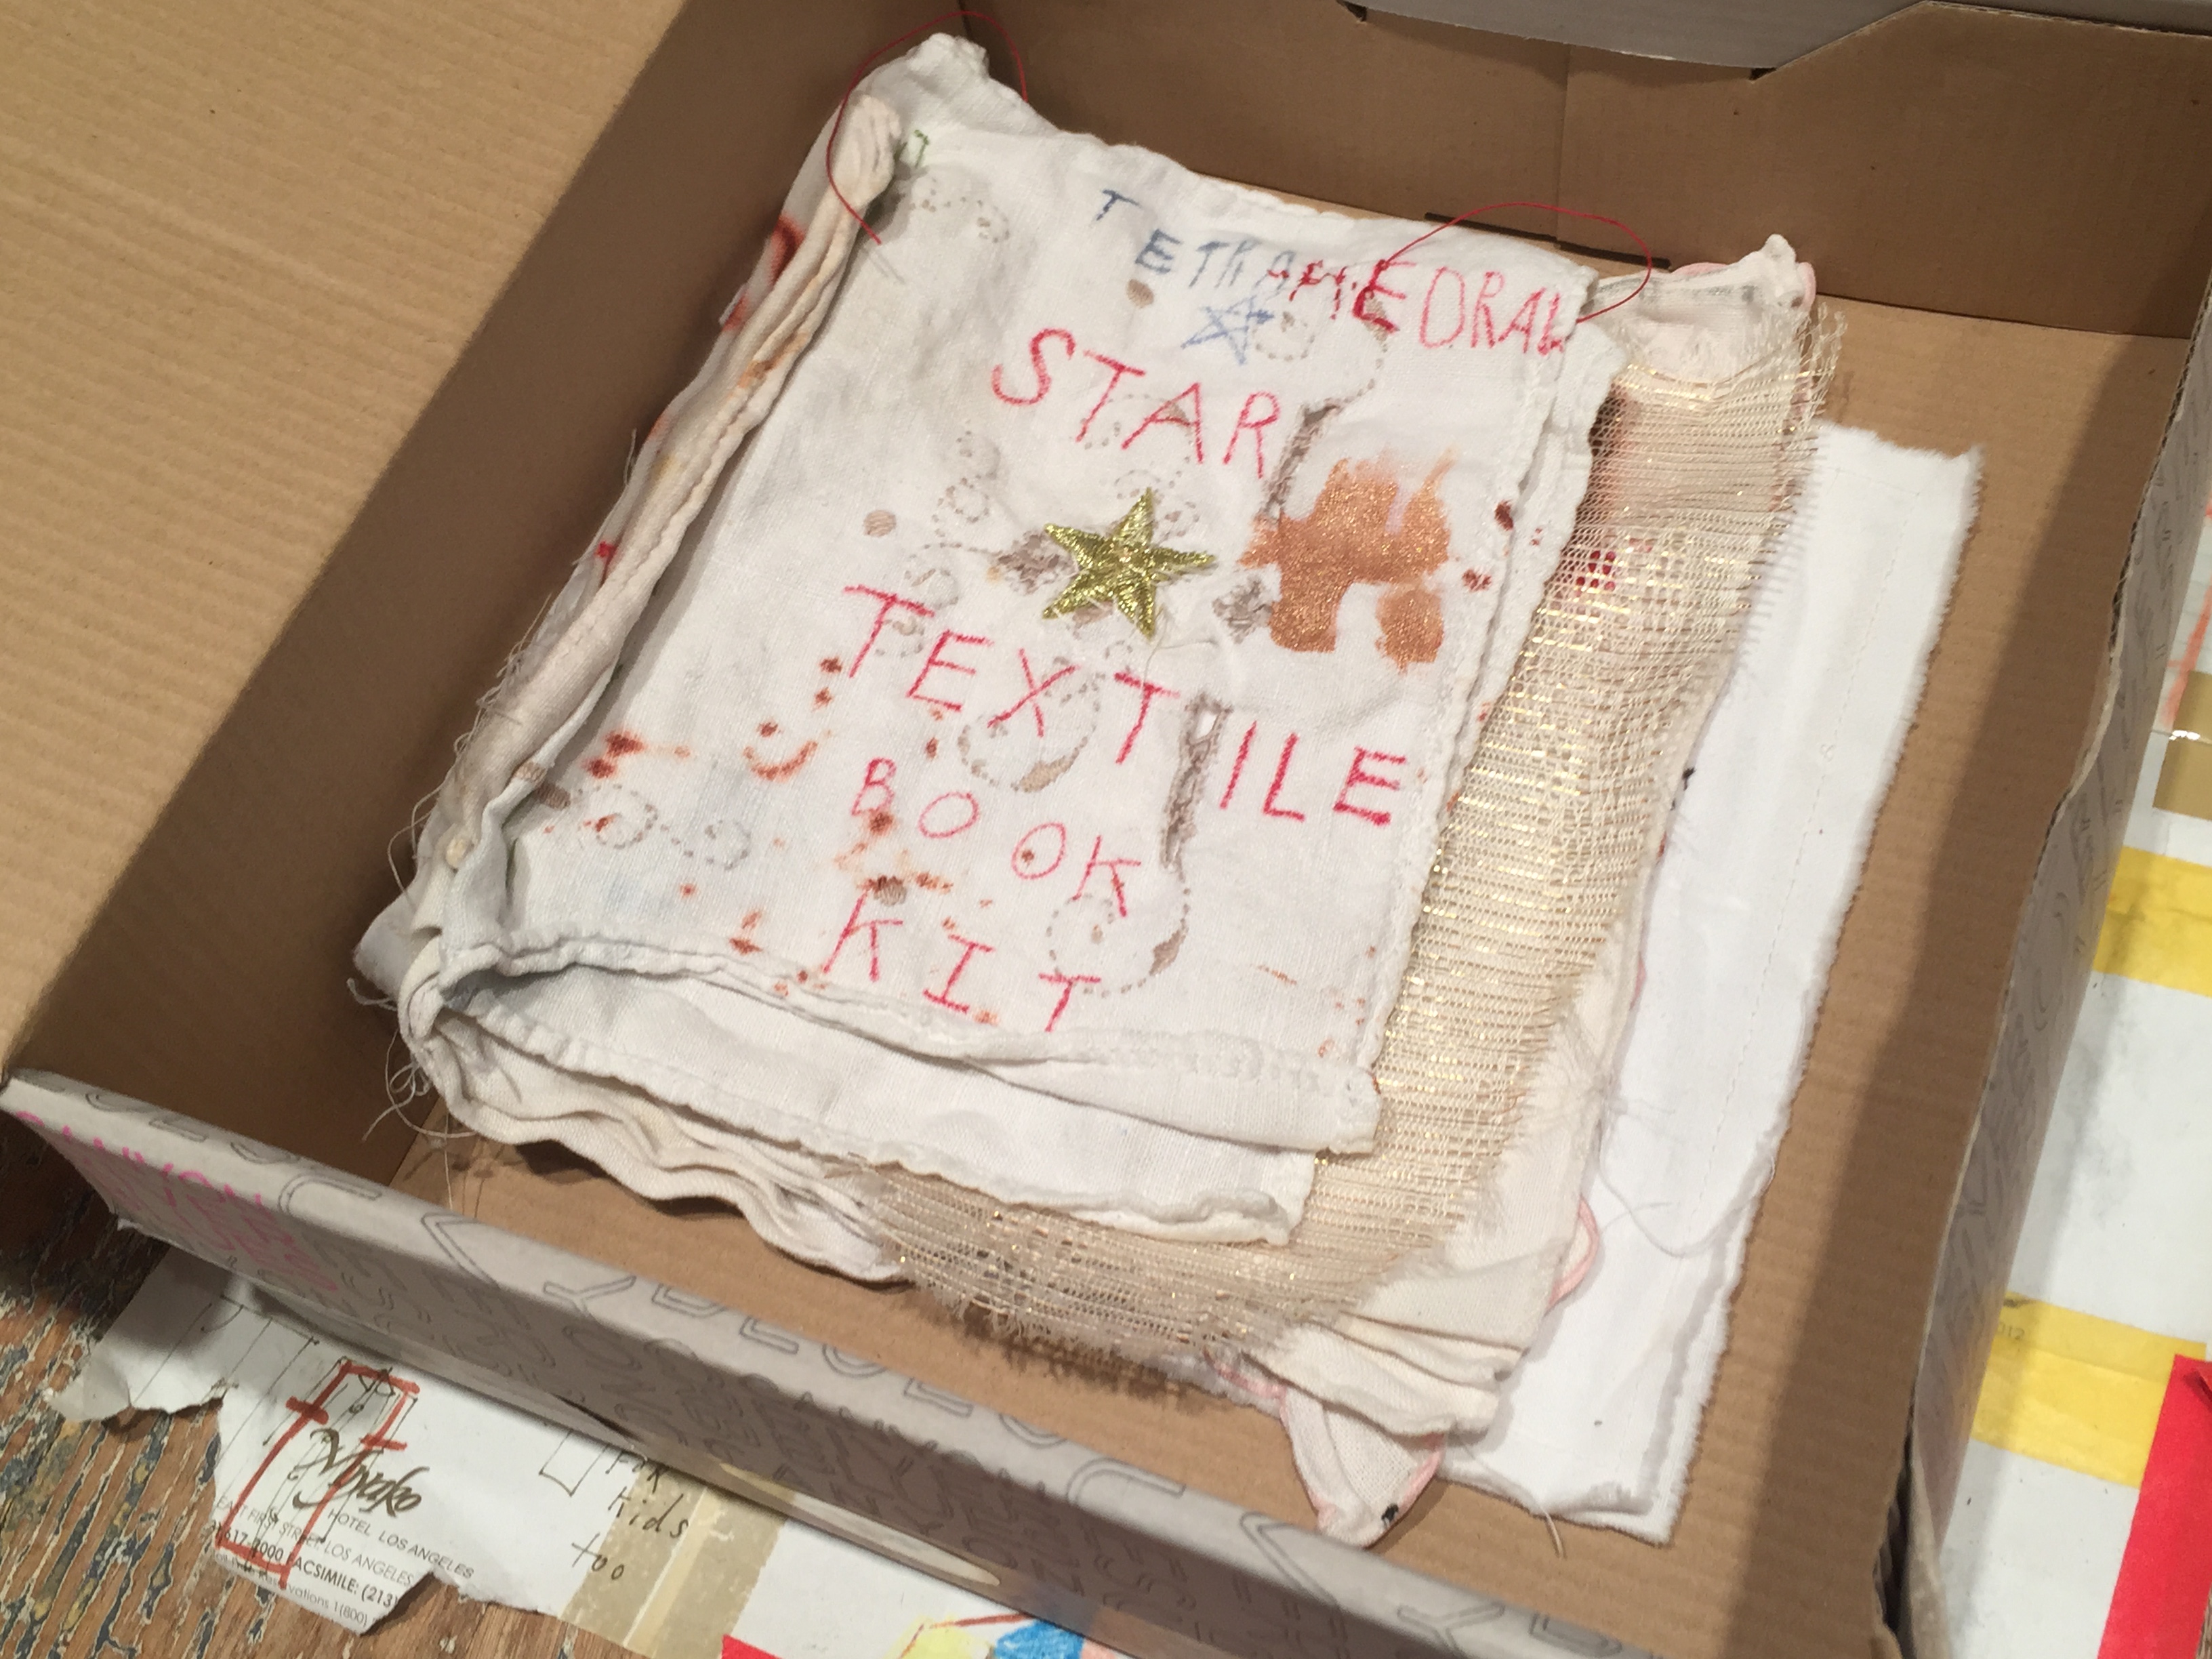 TETRAHEDRAL
STAR
TEXTILE
BOOK
KIT
CANYON
Miyako
HOTEL LOS ANGELES
EAST FIRST STREET LOS ANGELES
617-2000 FACSIMILE: (213)
Reservations 1(800)
FOR
Kids
too
2012